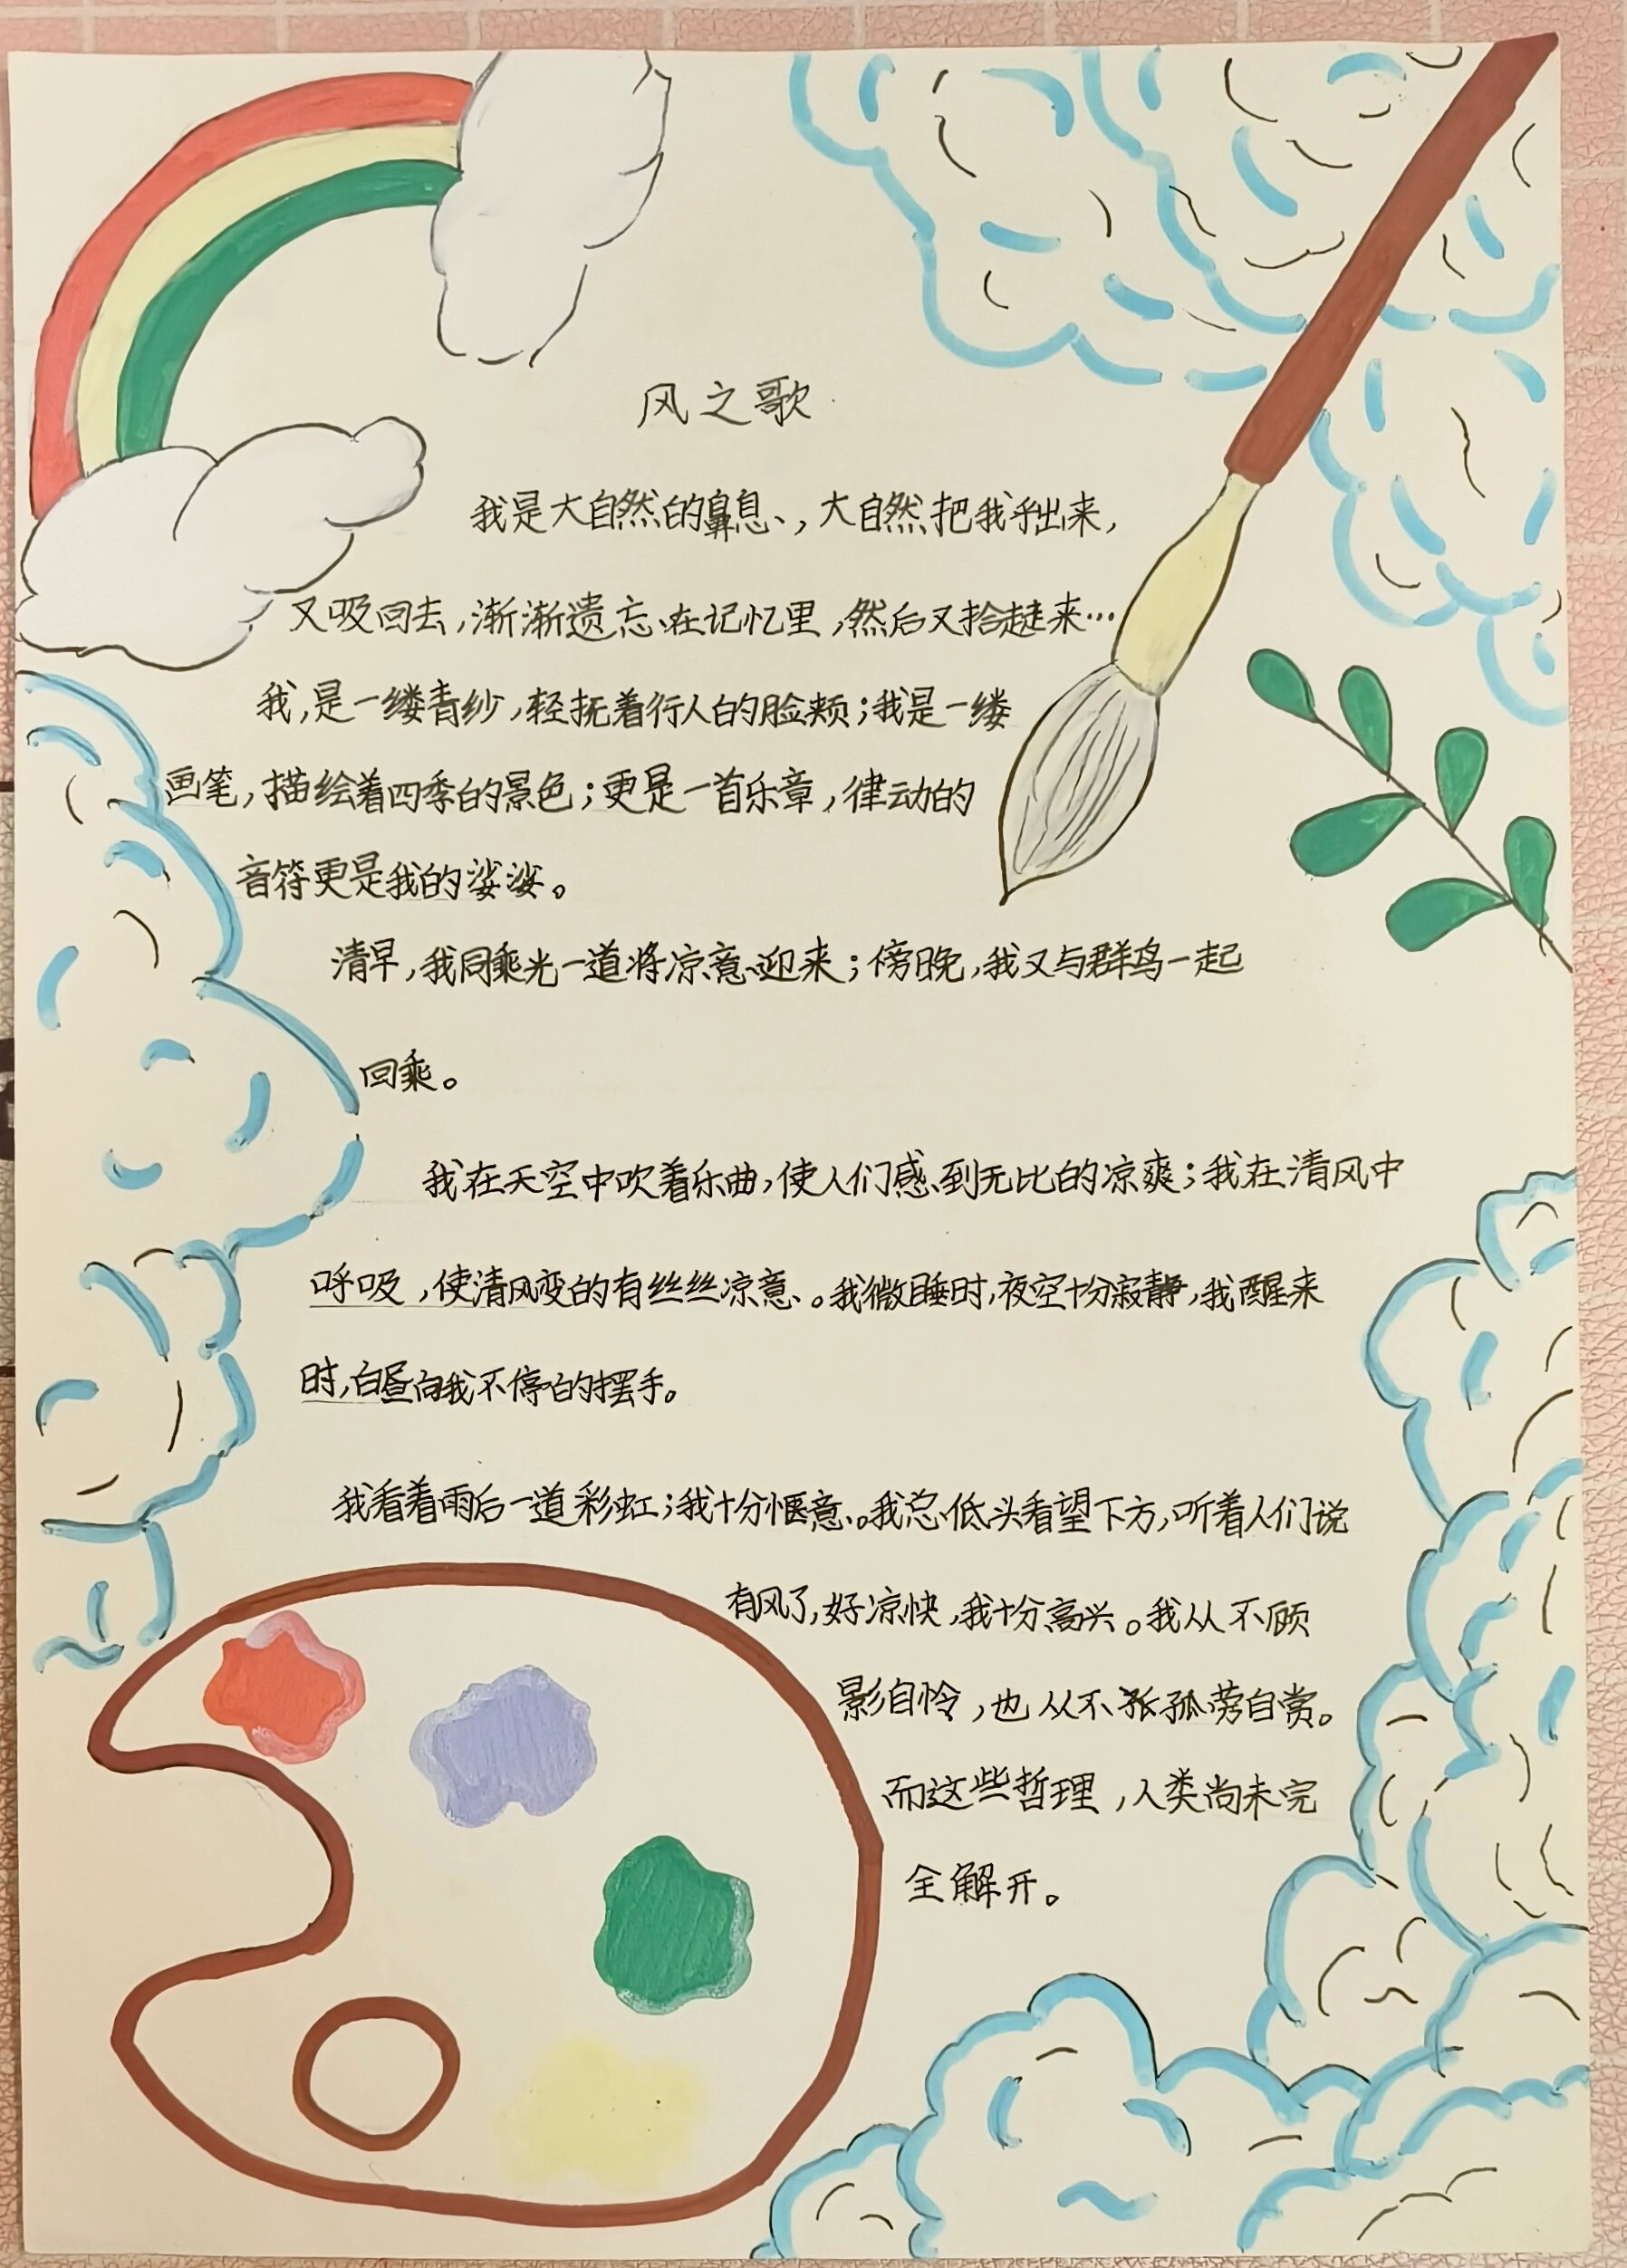 风之歌
我是大自然的鼻息，大自然把我呼出来，
又吸回去，渐渐遗忘在记忆里，然后又拾起来…
我，是一缕青纱，轻抚着行人的脸颊；我是一缕
画笔，描绘着四季的景色；更是一首乐章，律动的
音符更是我的婆婆。
清早，我同乘光一道将凉意迎来；傍晚，我又与群鸟一起
回乘。
我在天空中吹着乐曲，使人们感到无比的凉爽；我在清风中
呼吸，使清风变的有丝丝凉意。我微睡时，夜空十分寂静，我醒来
时，白昼向我不停的摆手。
我看着雨后一道彩虹；我十分惬意。我总低头看望下方，听着人们说
有风了，好凉快，我十分高兴。我从不顾
影自怜，也从不孤芳自赏。
而这些哲理，人类尚未完
全解开。